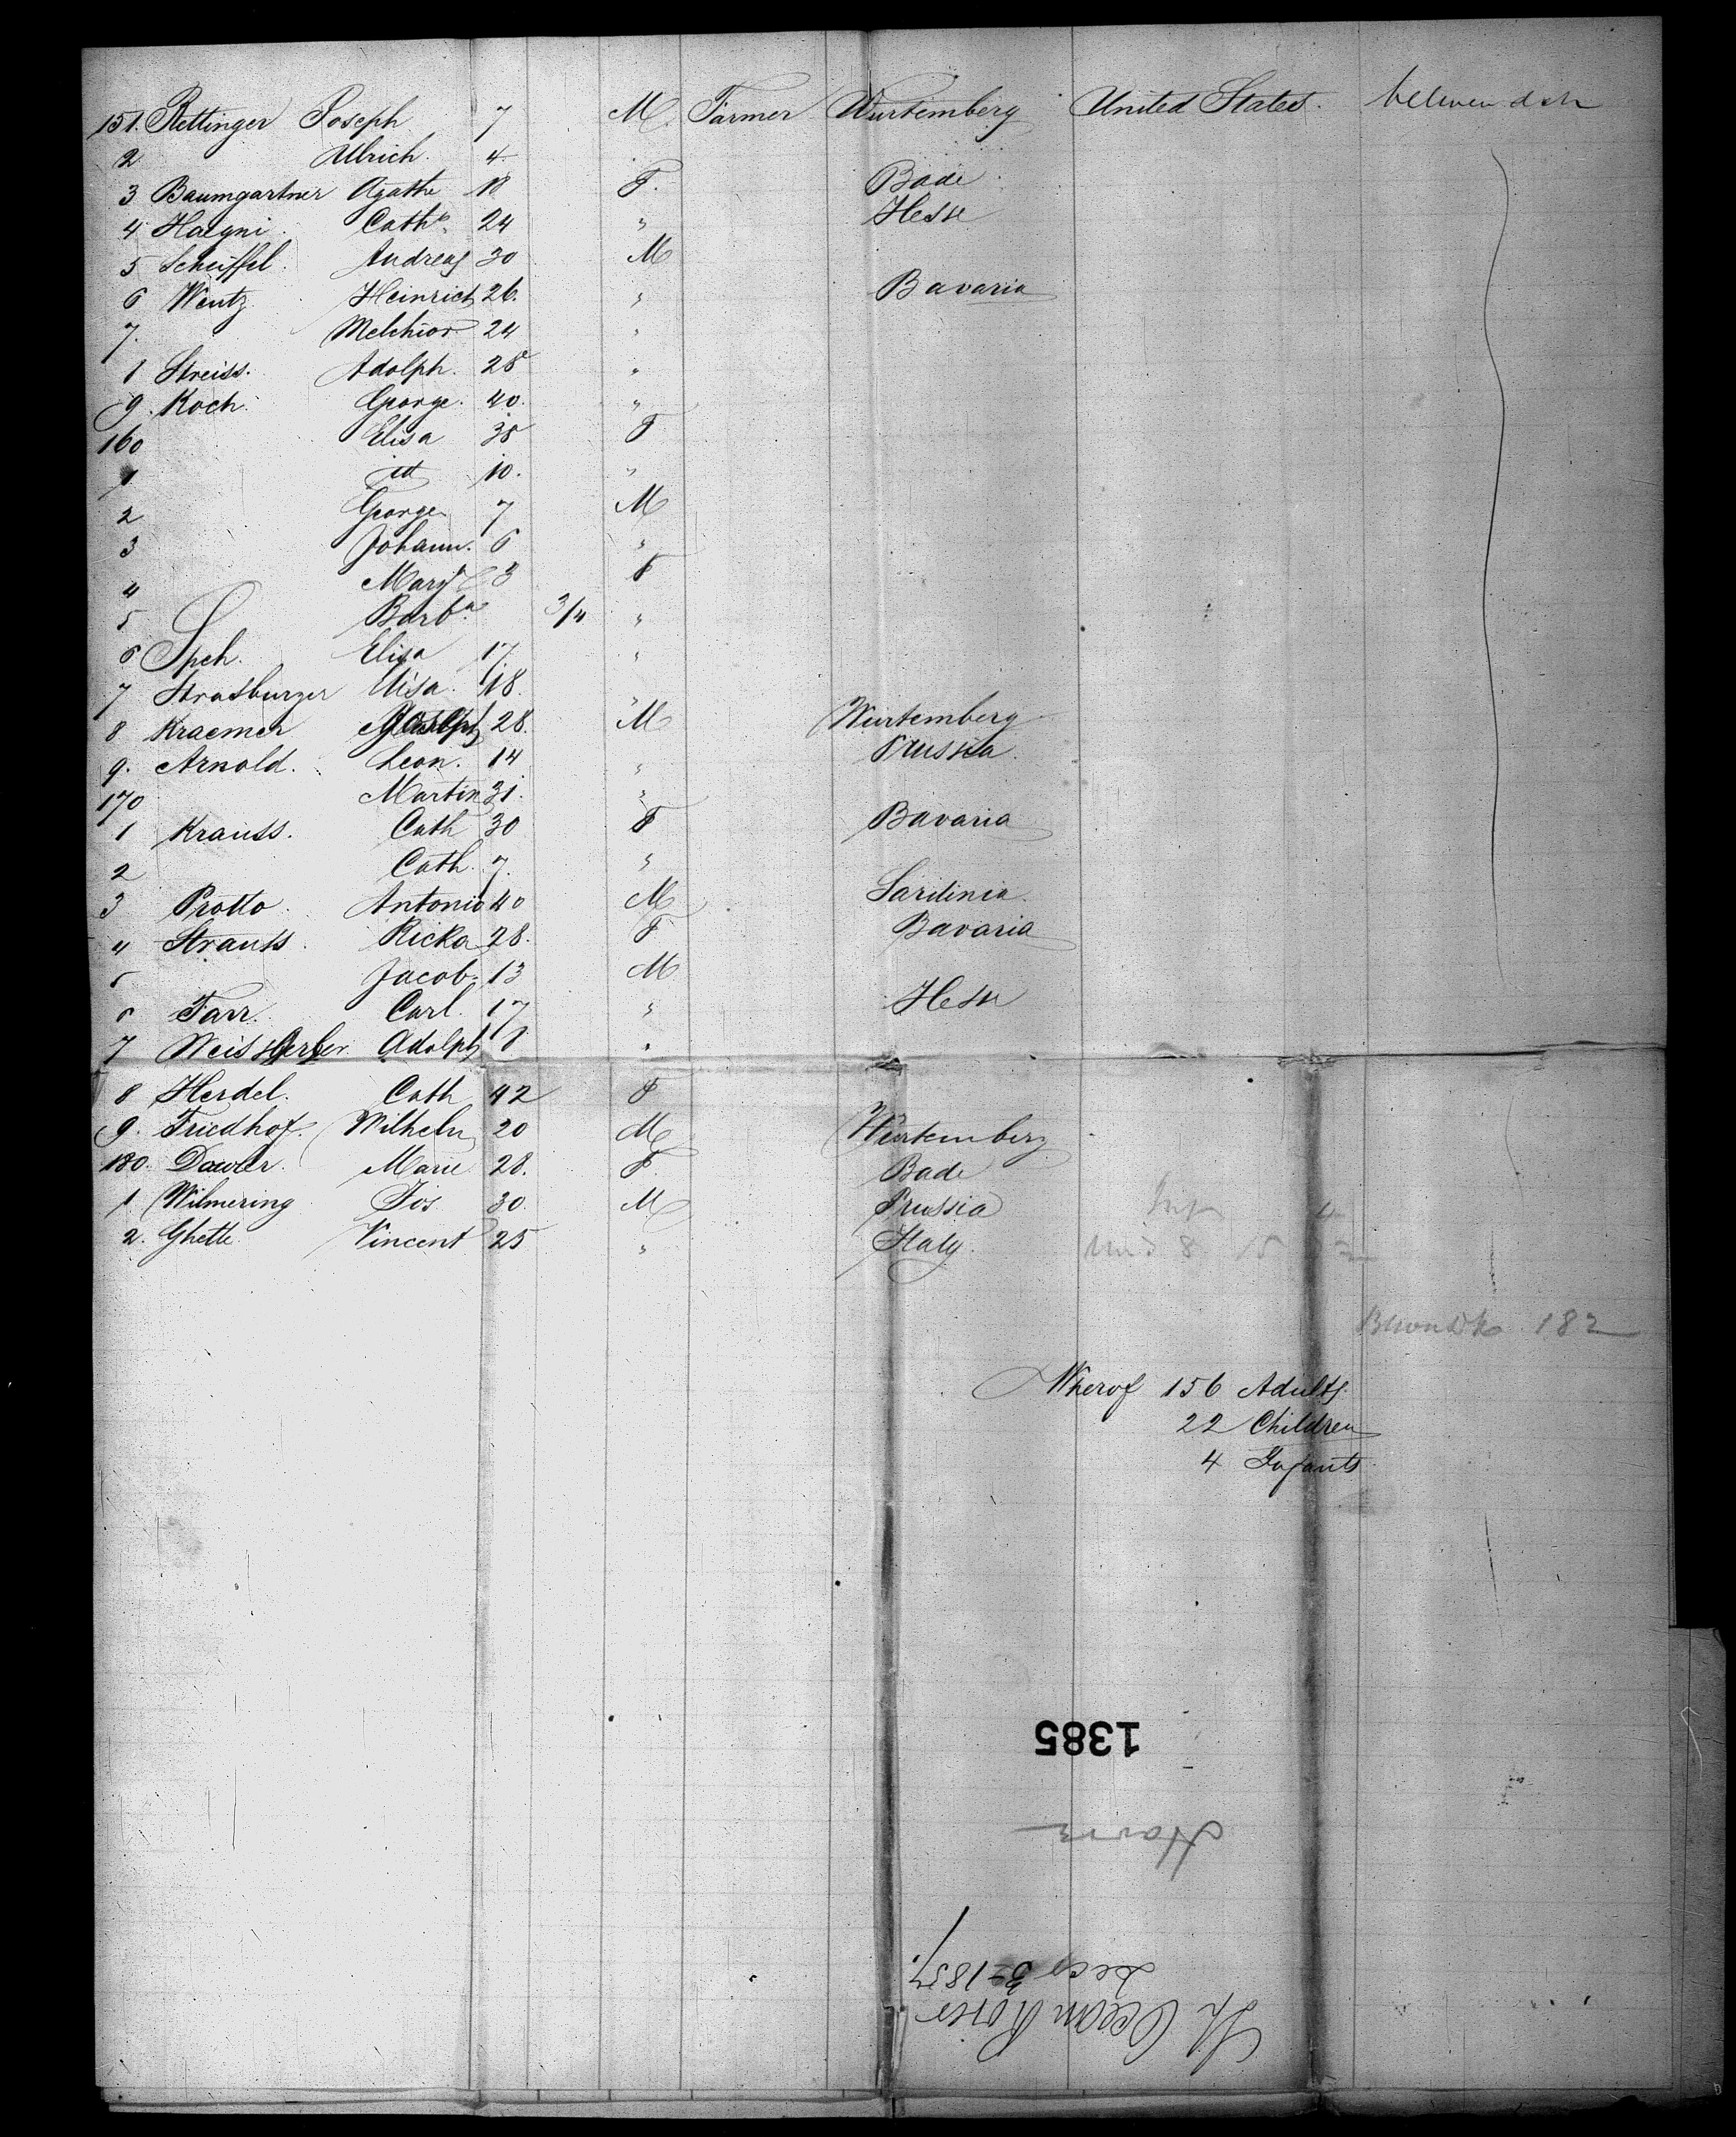 151. Rettinger Joseph 7 M. Farmer Wurtemberg United States. between deck
2 Ulrich. 4
3 Baumgartner Agathe 18 F. Bade
4 Haegni Cath. 24 " Hesse
5 Scheiffel. Andreas 30 M
6 Wentz Heinrich 26. " Bavaria
7. Melchior 24 "
1 Streiss. Adolph. 28 "
9. Koch. George. 40. "
160 Elisa 35 F
1 id 10. "
2 George 7 M
3 Johann. 6 "
4 Mary 3 F
5 Barba. 3/4 "
6 Speh. Elisa 17 "
7 Strasburger Elisa. 18. "
8 Kraemer 28. M Wurtemberg
9. Arnold. Leon. 14 " Prussia.
170 Martin 31. "
1 Krauss. Cath 30 F Bavaria
2 Cath. 7. "
3 Protto. Antonio 40 M Sardinia.
4 Strauss. Ricka 28. F Bavaria
5 Jacob. 13 M
6 Farr. Carl. 17 " Hesse
7 Weissgerber Adolph "
8 Herdel. Cath 42 F
9. Friedhof. Wilhelm 20 M Wurtemberg
180. Marie 28. F Bade
1 Wilmering Jos 30. M Prussia
2. Ghette Vincent 25 " Italy.
182
Wherof 156 Adults.
22 Children
4 Infants.
1385
Havre
Sh Ocean Rover
Dec 3 1857.